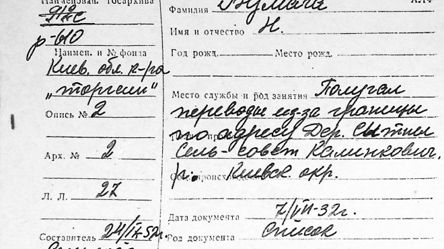 Фамилия
ДАС
р-610
Имя и отчество Н.
Наимен. и № фонда
Год рожд. Место рожд.
Киев. обл. к-ра
"торгсин"
Место службы и род занятия Получал
Опись № 2
переводы из-за границы
по адресу Дер.
Арх. № 2
Сель-совет Калинкович.
р. Киевск окр.
Л. Л. 27
Дата документа 7/VII-32г.
Составитель 24/IX-52г.
Род документа Список